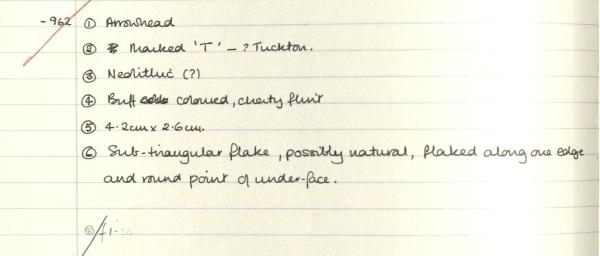 -962 ① Arrowhead
② Marked 'T' - ? Tuckton.
③ Neolithic (?)
④ Buff coloured, cherty flint
⑤ 4.2cm x 2.6cm.
⑥ Sub-triangular flake, possibly natural, flaked along one edge
and round point of under-face.